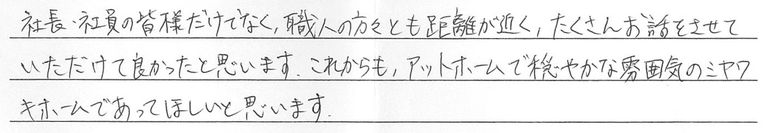 社長・社員の皆様だけでなく，職人の方々とも距離が近く，たくさんお話をさせて
いただけて良かったと思います．これからも，アットホームで穏やかな雰囲気のミヤワ
キホームであってほしいと思います．